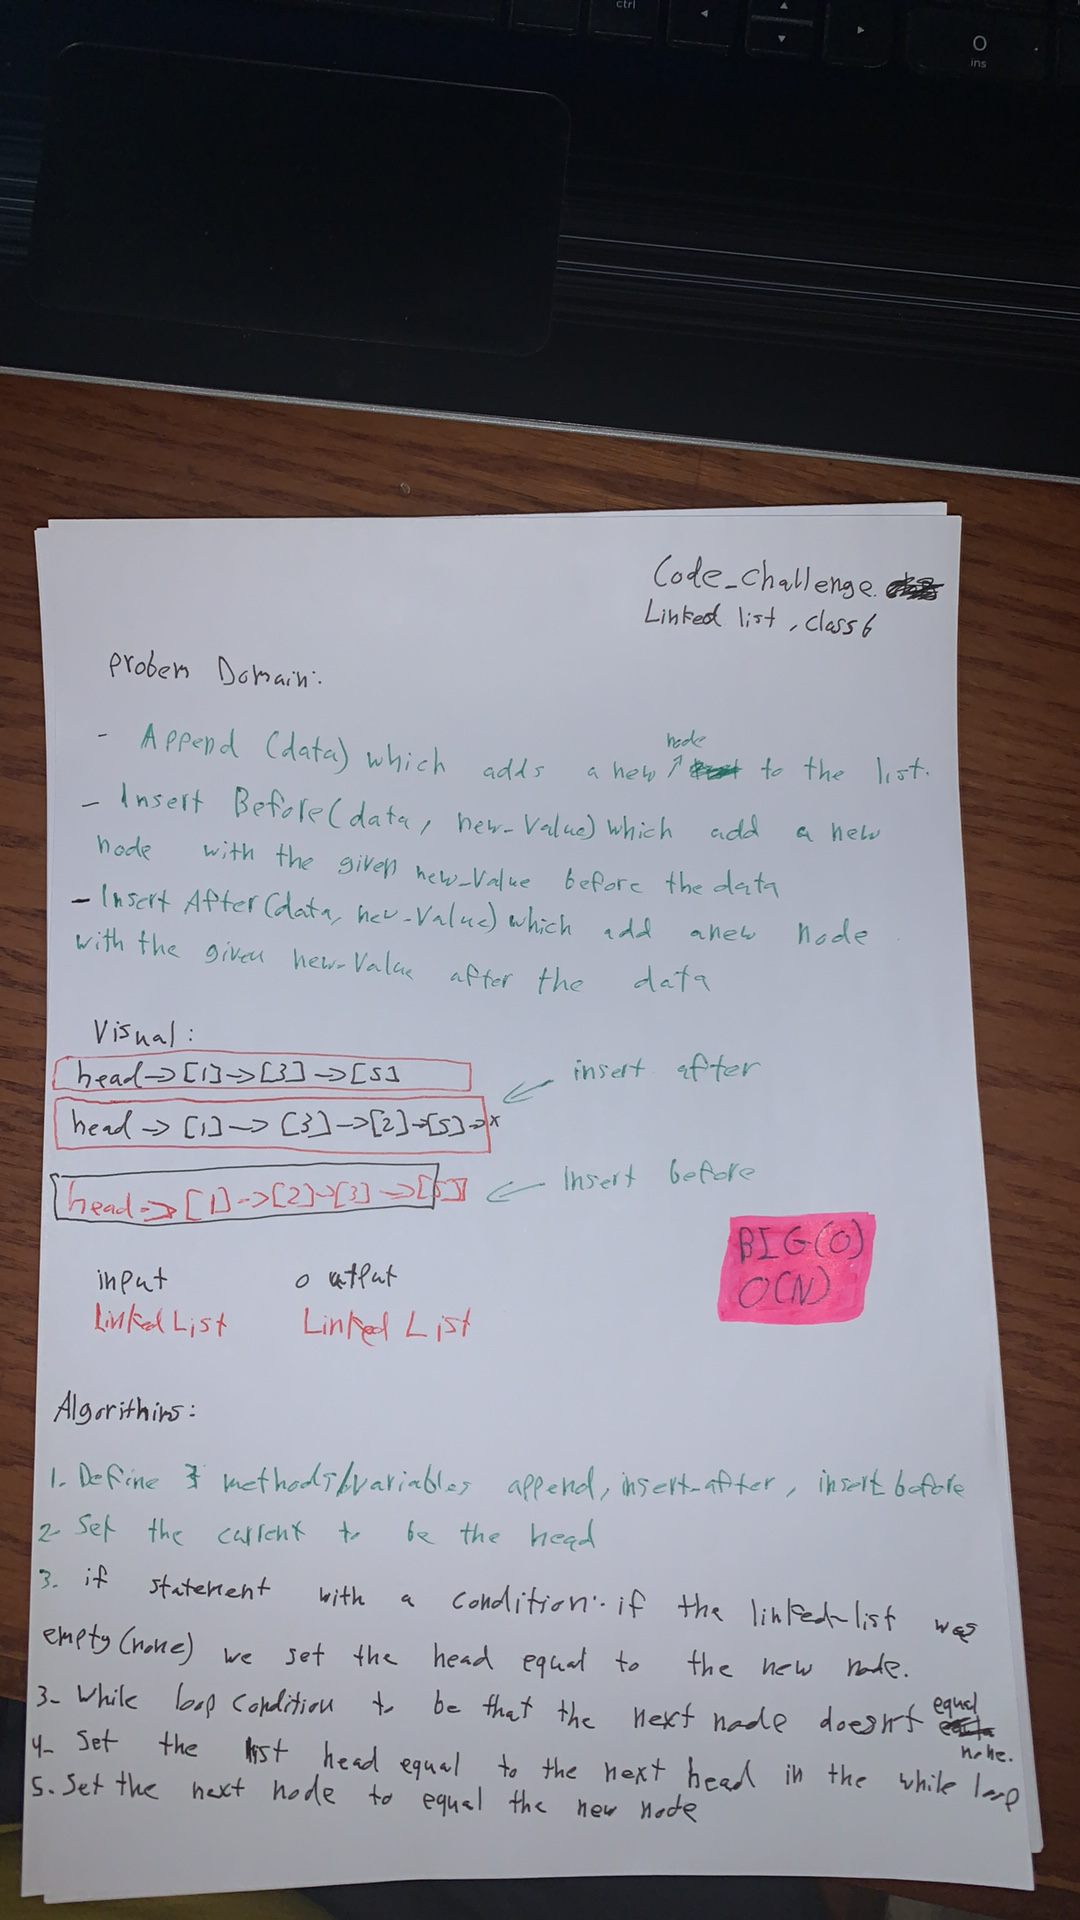 ctrl
O
ins
Code_challenge.
Linked list, class 6
proben Domain:
- Append (data) which adds a new node to the list.
- Insert Before(data, new-Value) which add a new
node with the given new_Value before the data
- Insert After(data, new-Value) which add anew Node
with the given new-Value after the data
Visual:
head->[1]->[3]->[5]
insert after
head->[1]->[3]->[2]->[5]->x
head->[1]->[2]->[3]->[5]
Insert before
BIG(O)
O(N)
input output
Linked List Linked List
Algorithims:
1. Define 3 methods/variables append, insert-after, insert before
2- Set the current to be the head
3. if statement with a condition: if the linked-list was
empty(none) we set the head equal to the new node.
3- While loop condition to be that the next node doesnt equal
none.
4- Set the list head equal to the next head in the while loop
5. Set the next node to equal the new node